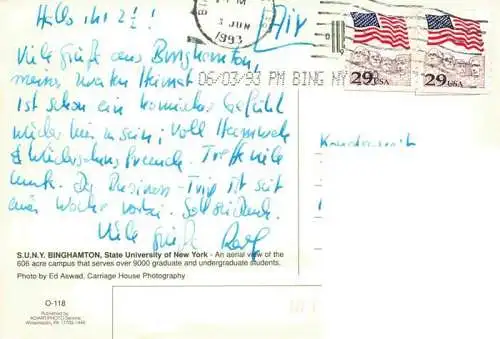 Hallo ihr 2½!
Viele Grüße aus Binghamton,
meiner zweiten Heimat
ist schon ein komisches Gefühl
wieder hier zu sein; voll Heimweh
& Wiedersehensfreude. Treffe viele
Leute. Der Business-Trip ist seit
einer Woche vorbei.
Viele Grüße Ralf
Air
3 JUN
1993
06/03/93 PM BING NY
29 USA
29 USA
S.U.N.Y. BINGHAMTON, State University of New York - An aerial view of the
606 acre campus that serves over 9000 graduate and undergraduate students.
Photo by Ed Aswad, Carriage House Photography
O-118
Published by